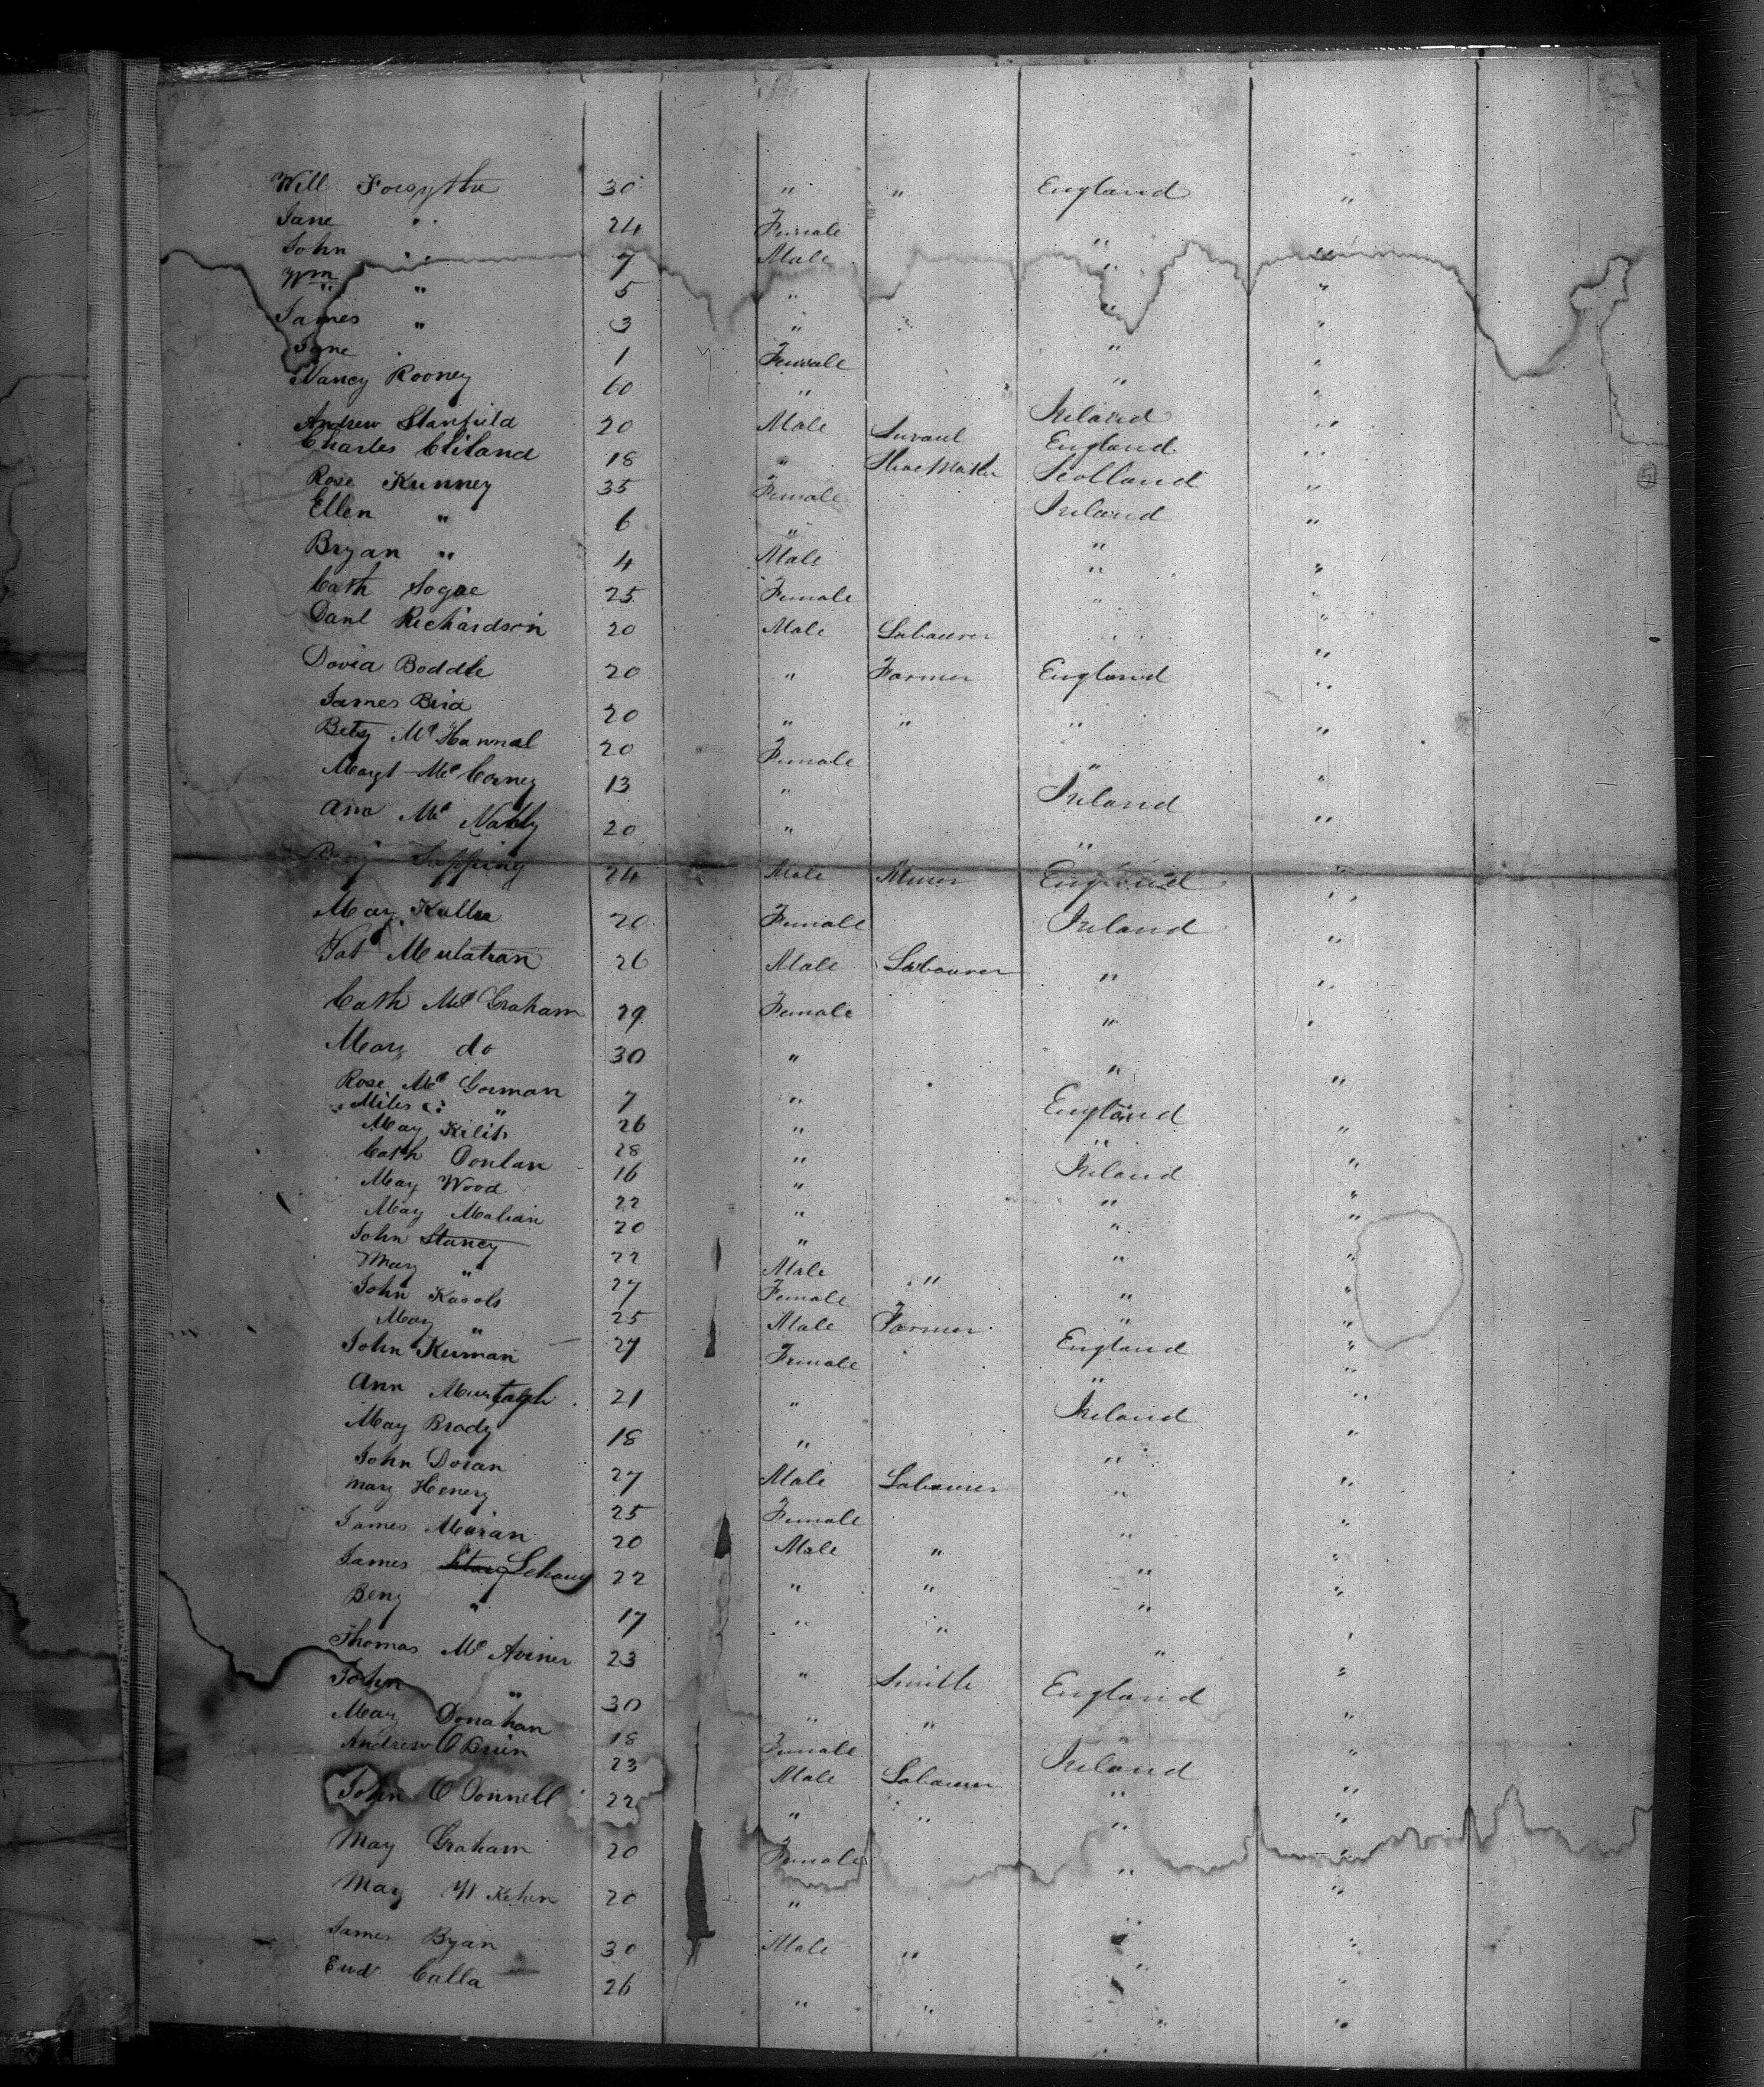 Will Forsythe 30 " " England "
Jane " 24 Female "
John " 7 Male " "
Wm " 5 " " "
James " 3 " "
Jane 1 Female " "
Nancy Rooney 60 " Ireland "
Andrew Stanfield 20 Male Servant England "
Charles Cliland 18 " Shoe Maker Scotland "
Rose Kunney 35 Female Ireland "
Ellen " 6 " " "
Bryan " 4 Male " "
Cath Logue 25 Female " "
Danl Richardson 20 Male Labourer " "
David Boddle 20 " Farmer England "
James Bird 20 " " " "
Betsy Mc Hannal 20 Female " "
Margt Mc Corney 13 " Ireland "
Ann Mc Nally 20 " " "
Benj Tapping 24 Male Miner England "
Mary Kulla 20 Female Ireland "
Pat Mulatran 26 Male Labourer " "
Cath Mc Graham 29 Female " "
Mary do 30 " " "
Rose Mc Gorman 7 " England "
Miles " 26 " " "
May 28 " Ireland "
Cath Donlan 16 " " "
May Wood 22 " " "
May Malian 20 " " "
John Stancy 22 Male " " "
Mary " 27 Female " "
John Kasols 25 Male Farmer England "
Mary " 27 Female " "
John Kerman
Ann Murtagh 21 " Ireland "
May Brady 18 " " "
John Doran 27 Male Labourer " "
Mary Henery 25 Female " "
James Maran 20 Male " " "
James Lehany 22 " " " "
Benj " 17 " " " "
Thomas Mc Aviner 23 " Smith England "
John " 30 " " " "
Mary Donahan 18 Female Ireland "
Andrew O Brien 23 Male Labourer " "
John O Donnell 22 " " " "
May Graham 20 Female " "
May 20 " " "
James Byan 30 Male " " "
Calla 26 " " " "